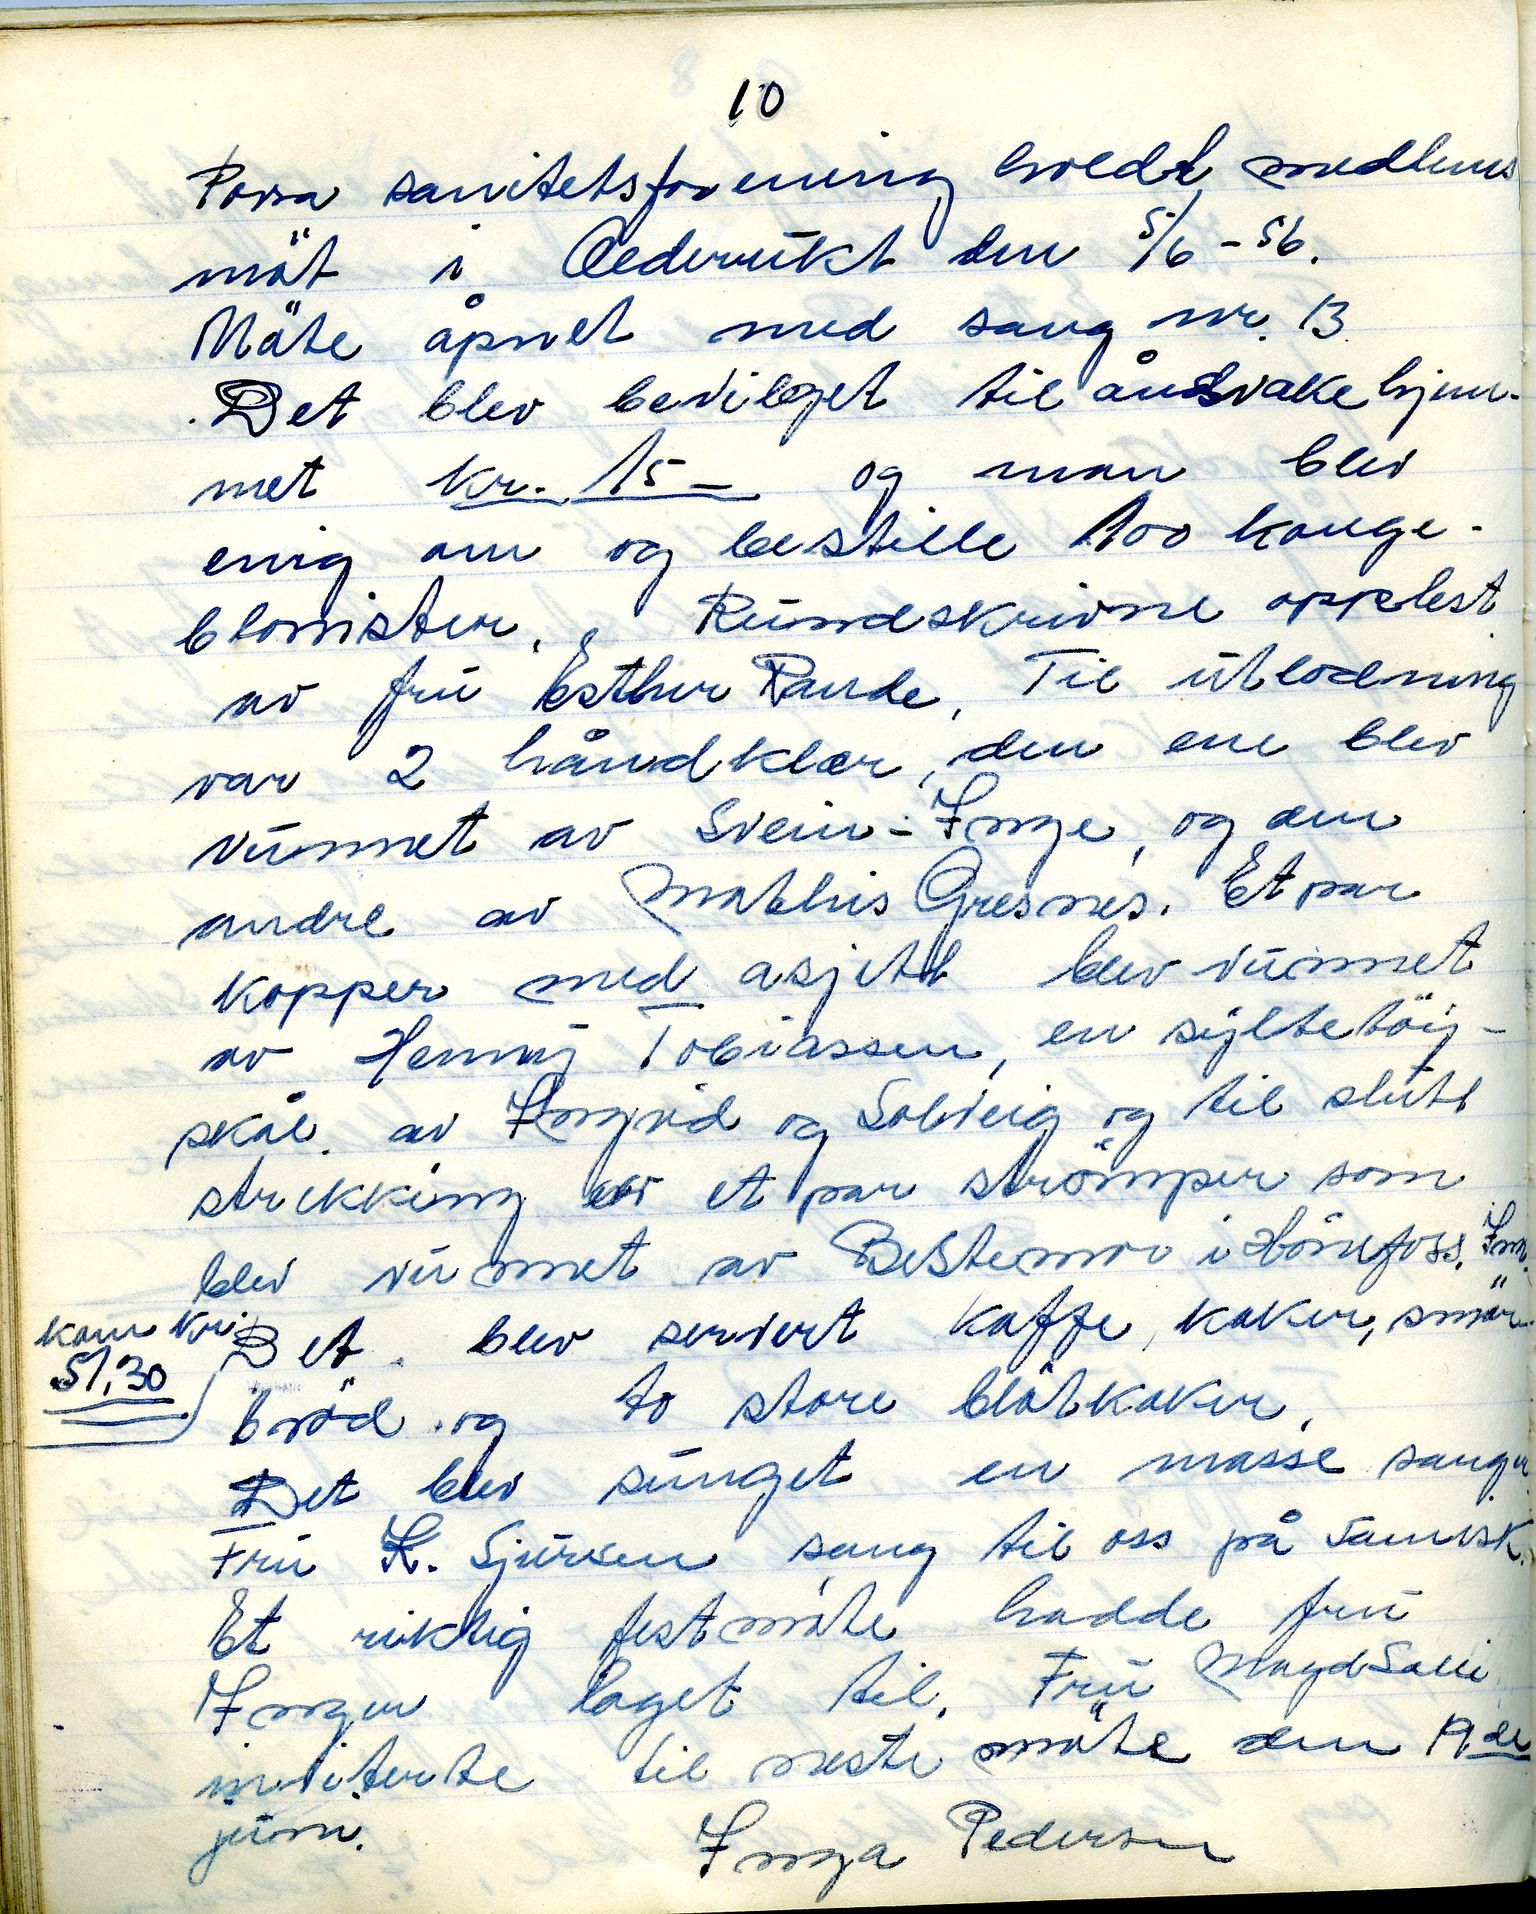 10
Porsa sanitetsforening holdt medlems
möt i Aedervikt den 5/6-56.
Möte åpnet med sang nr. 13.
Det blev bevilget til åndsvakehjem-
met kr. 15- og man blev
enig om og bestille 100 konge-
blomster. Rundskrivne opplest
av frü Esther Rande. Til utlodning
var 2 håndklær, den ene blev
vunnet av Svein-Inge, og den
andre av Mathis Gresnes. Et par
kopper med asjett blev vunnet
av Henny Tobiassen, en syltetöy-
skål av Ingrid og Solveig og til slutt
strikking av et par strömper som
blev vunnet av Bestemor i Hönefoss.
kom kr. 51,30
Det blev servert kaffe, kaker, smör-
bröd og to store blötkaker.
Det blev sunget en masse sanger
Frü K. Sjursen sang til oss på Samisk.
Et riktig festmöte hadde frü
Inger laget til. Frü Magd Salli
inviterte til neste möte den 19de
juni.
Inga Pedersen